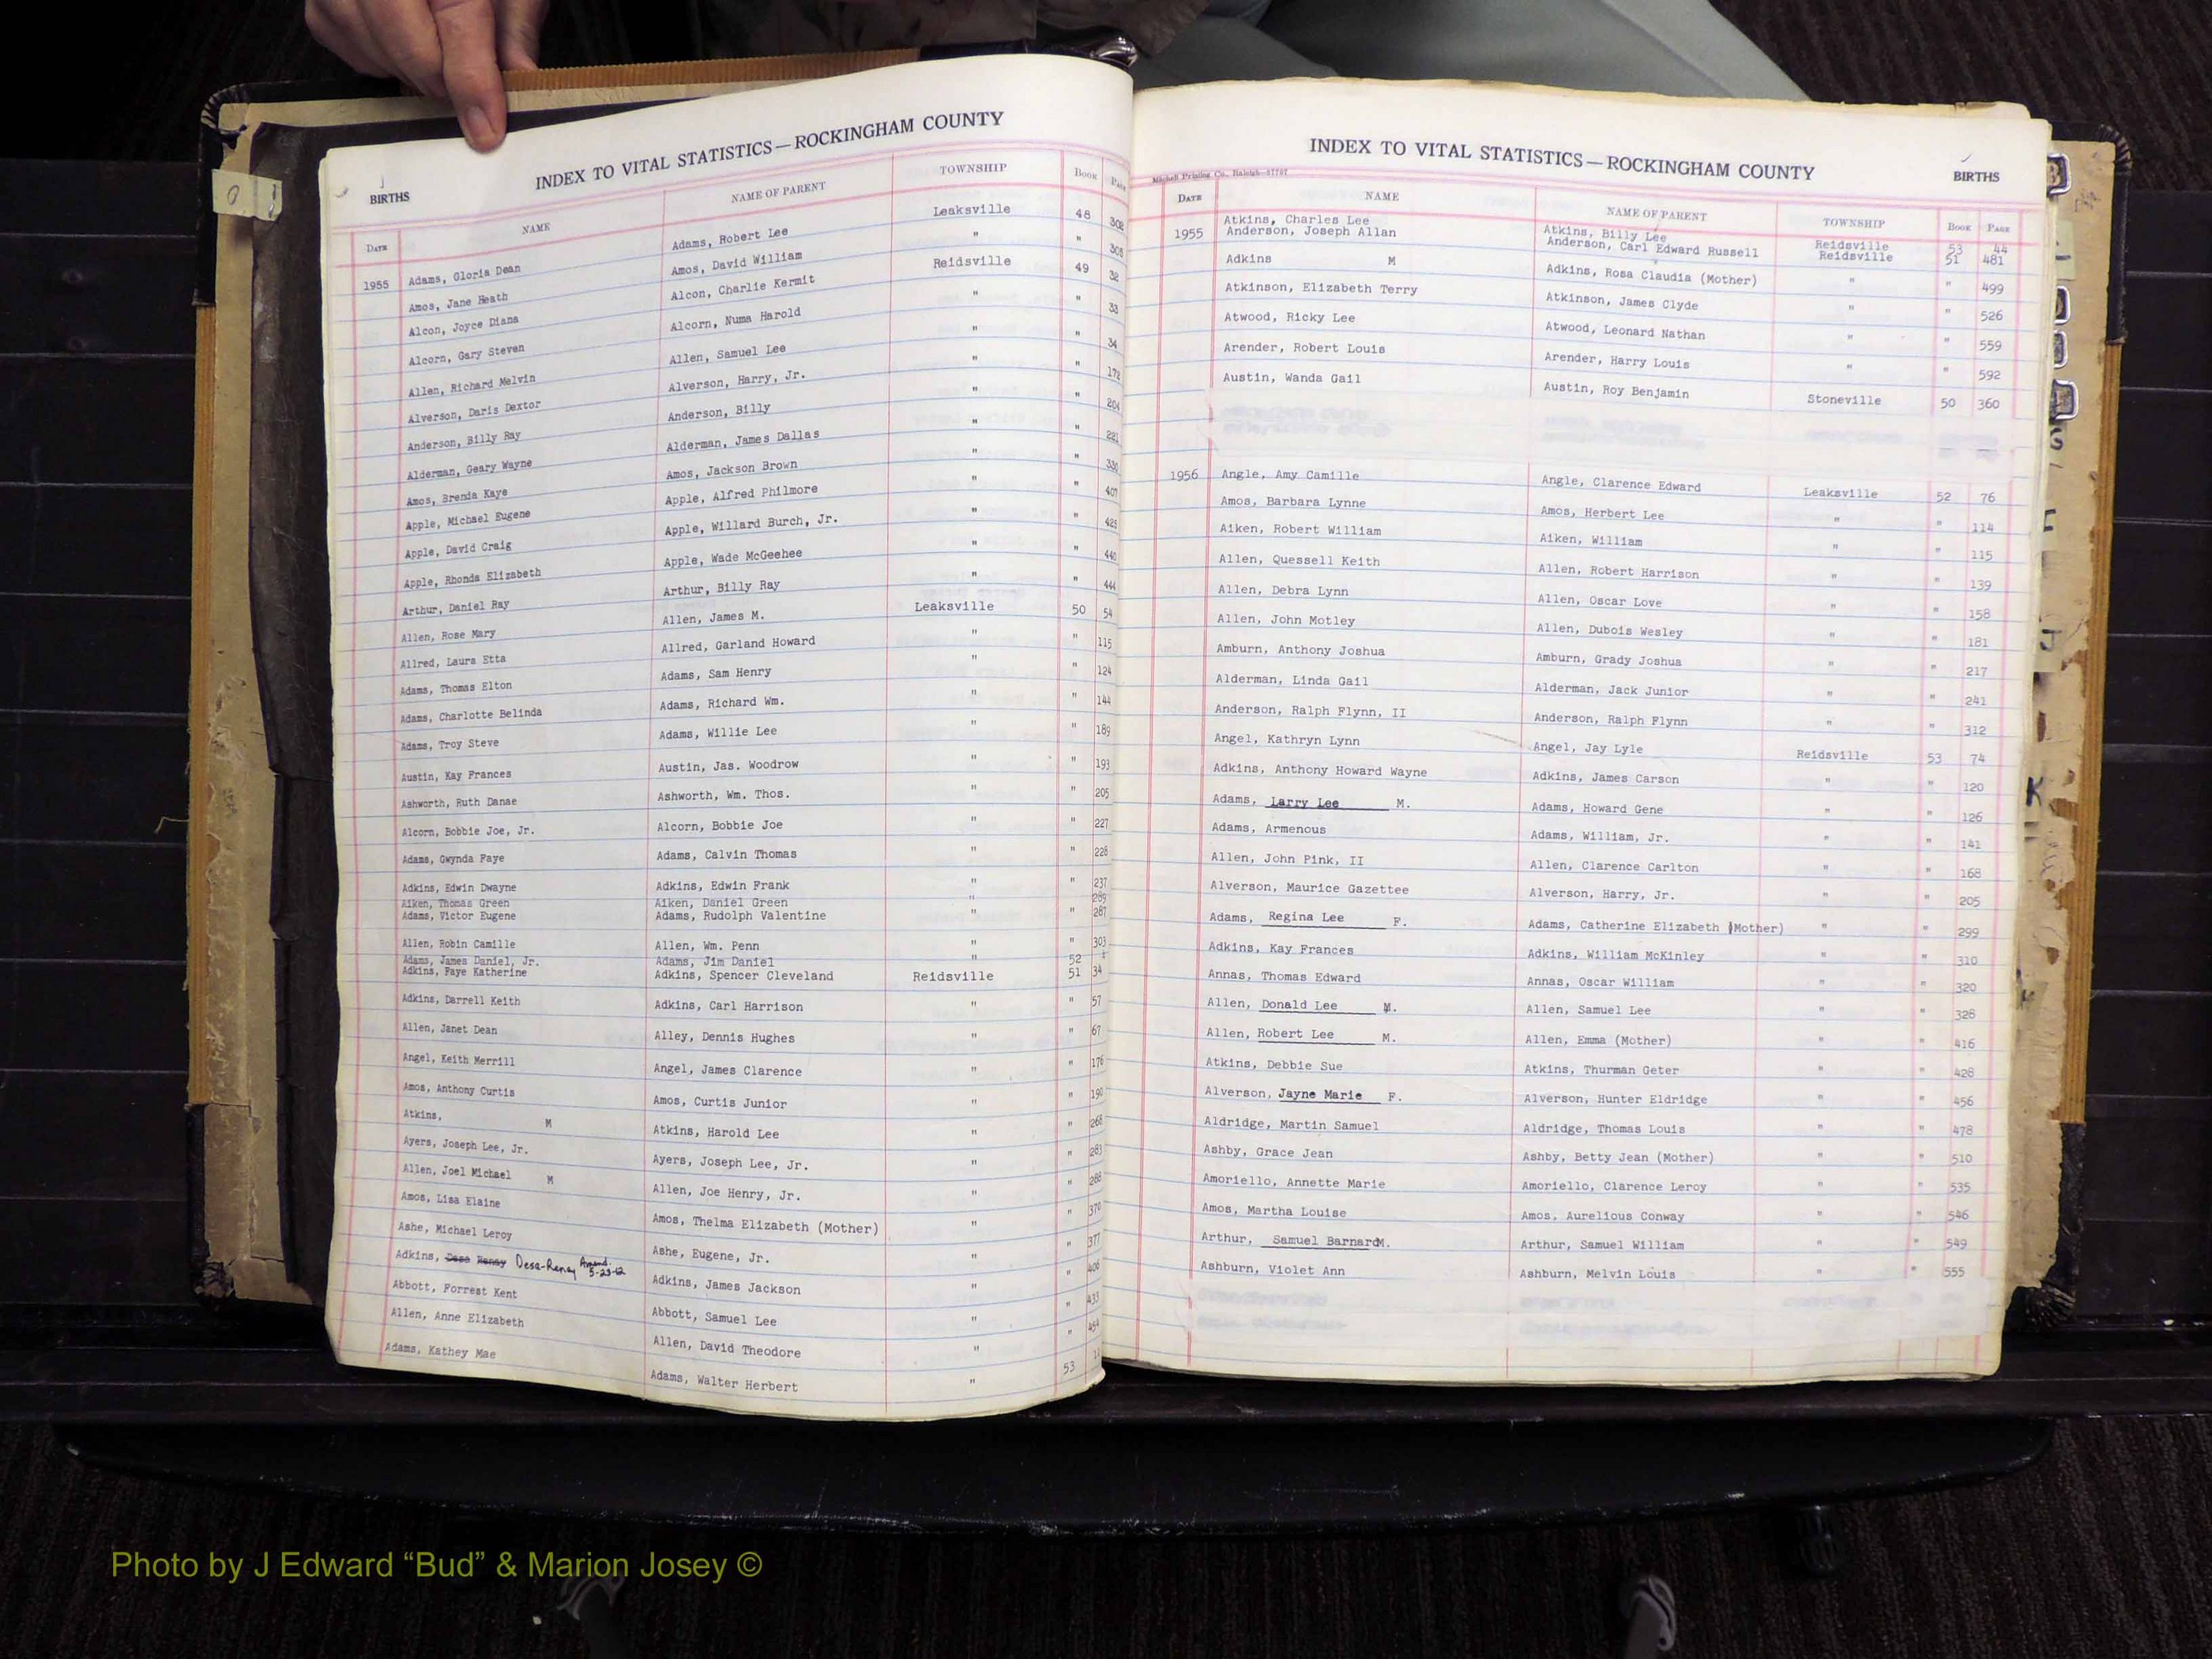 INDEX TO VITAL STATISTICS—ROCKINGHAM COUNTY
BIRTHS
DATE NAME NAME OF PARENT TOWNSHIP BOOK PAGE
1955 Adams, Gloria Dean Adams, Robert Lee Leaksville 48 302
Amos, Jane Heath Amos, David William " " 305
Alcon, Joyce Diana Alcon, Charlie Kermit Reidsville 49 32
Alcorn, Gary Steven Alcorn, Numa Harold " " 33
Allen, Richard Melvin Allen, Samuel Lee " " 34
Alverson, Daris Dextor Alverson, Harry, Jr. " " 172
Anderson, Billy Ray Anderson, Billy " " 204
Alderman, Geary Wayne Alderman, James Dallas " " 221
Amos, Brenda Kaye Amos, Jackson Brown " " 330
Apple, Michael Eugene Apple, Alfred Philmore " " 407
Apple, David Craig Apple, Willard Burch, Jr. " " 425
Apple, Rhonda Elizabeth Apple, Wade McGeehee " " 440
Arthur, Daniel Ray Arthur, Billy Ray " " 444
Allen, Rose Mary Allen, James M. Leaksville 50 54
Allred, Laura Etta Allred, Garland Howard " " 115
Adams, Thomas Elton Adams, Sam Henry " " 124
Adams, Charlotte Belinda Adams, Richard Wm. " " 144
Adams, Troy Steve Adams, Willie Lee " " 189
Austin, Kay Frances Austin, Jas. Woodrow " " 193
Ashworth, Ruth Danae Ashworth, Wm. Thos. " " 205
Alcorn, Bobbie Joe, Jr. Alcorn, Bobbie Joe " " 227
Adams, Gwynda Faye Adams, Calvin Thomas " " 228
Adkins, Edwin Dwayne Adkins, Edwin Frank " " 237
Aiken, Thomas Green Aiken, Daniel Green " 289
Adams, Victor Eugene Adams, Rudolph Valentine " " 287
Allen, Robin Camille Allen, Wm. Penn " " 303
Adams, James Daniel, Jr. Adams, Jim Daniel " 52
Adkins, Faye Katherine Adkins, Spencer Cleveland Reidsville 51 34
Adkins, Darrell Keith Adkins, Carl Harrison " " 57
Allen, Janet Dean Alley, Dennis Hughes " " 67
Angel, Keith Merrill Angel, James Clarence " " 176
Amos, Anthony Curtis Amos, Curtis Junior " " 190
Atkins, M Atkins, Harold Lee " " 268
Ayers, Joseph Lee, Jr. Ayers, Joseph Lee, Jr. " " 283
Allen, Joel Michael M Allen, Joe Henry, Jr. " " 288
Amos, Lisa Elaine Amos, Thelma Elizabeth (Mother) " " 370
Ashe, Michael Leroy Ashe, Eugene, Jr. " " 377
Adkins, Desa Renay Desa-Renay Amend. 5-23-12 Adkins, James Jackson " " 406
Abbott, Forrest Kent Abbott, Samuel Lee " " 433
Allen, Anne Elizabeth Allen, David Theodore " " 454
Adams, Kathey Mae Adams, Walter Herbert " 53 11
INDEX TO VITAL STATISTICS—ROCKINGHAM COUNTY
BIRTHS
Mitchell Printing Co., Raleigh
DATE NAME NAME OF PARENT TOWNSHIP BOOK PAGE
Atkins, Charles Lee Atkins, Billy Lee Reidsville 53 44
1955 Anderson, Joseph Allan Anderson, Carl Edward Russell Reidsville 51 481
Adkins M Adkins, Rosa Claudia (Mother) " " 499
Atkinson, Elizabeth Terry Atkinson, James Clyde " " 526
Atwood, Ricky Lee Atwood, Leonard Nathan " " 559
Arender, Robert Louis Arender, Harry Louis " " 592
Austin, Wanda Gail Austin, Roy Benjamin Stoneville 50 360
1956 Angle, Amy Camille Angle, Clarence Edward Leaksville 52 76
Amos, Barbara Lynne Amos, Herbert Lee " " 114
Aiken, Robert William Aiken, William " " 115
Allen, Quessell Keith Allen, Robert Harrison " " 139
Allen, Debra Lynn Allen, Oscar Love " " 158
Allen, John Motley Allen, Dubois Wesley " " 181
Amburn, Anthony Joshua Amburn, Grady Joshua " " 217
Alderman, Linda Gail Alderman, Jack Junior " " 241
Anderson, Ralph Flynn, II Anderson, Ralph Flynn " " 312
Angel, Kathryn Lynn Angel, Jay Lyle Reidsville 53 74
Adkins, Anthony Howard Wayne Adkins, James Carson " " 120
Adams, Larry Lee M. Adams, Howard Gene " " 126
Adams, Armenous Adams, William, Jr. " " 141
Allen, John Pink, II Allen, Clarence Carlton " " 168
Alverson, Maurice Gazettee Alverson, Harry, Jr. " " 205
Adams, Regina Lee F. Adams, Catherine Elizabeth (Mother) " " 299
Adkins, Kay Frances Adkins, William McKinley " " 310
Annas, Thomas Edward Annas, Oscar William " " 320
Allen, Donald Lee M. Allen, Samuel Lee " " 328
Allen, Robert Lee M. Allen, Emma (Mother) " " 416
Atkins, Debbie Sue Atkins, Thurman Geter " " 428
Alverson, Jayne Marie F. Alverson, Hunter Eldridge " " 456
Aldridge, Martin Samuel Aldridge, Thomas Louis " " 478
Ashby, Grace Jean Ashby, Betty Jean (Mother) " " 510
Amoriello, Annette Marie Amoriello, Clarence Leroy " " 535
Amos, Martha Louise Amos, Aurelious Conway " " 546
Arthur, Samuel Barnard M. Arthur, Samuel William " " 549
Ashburn, Violet Ann Ashburn, Melvin Louis " " 555
Photo by J Edward “Bud” & Marion Josey ©